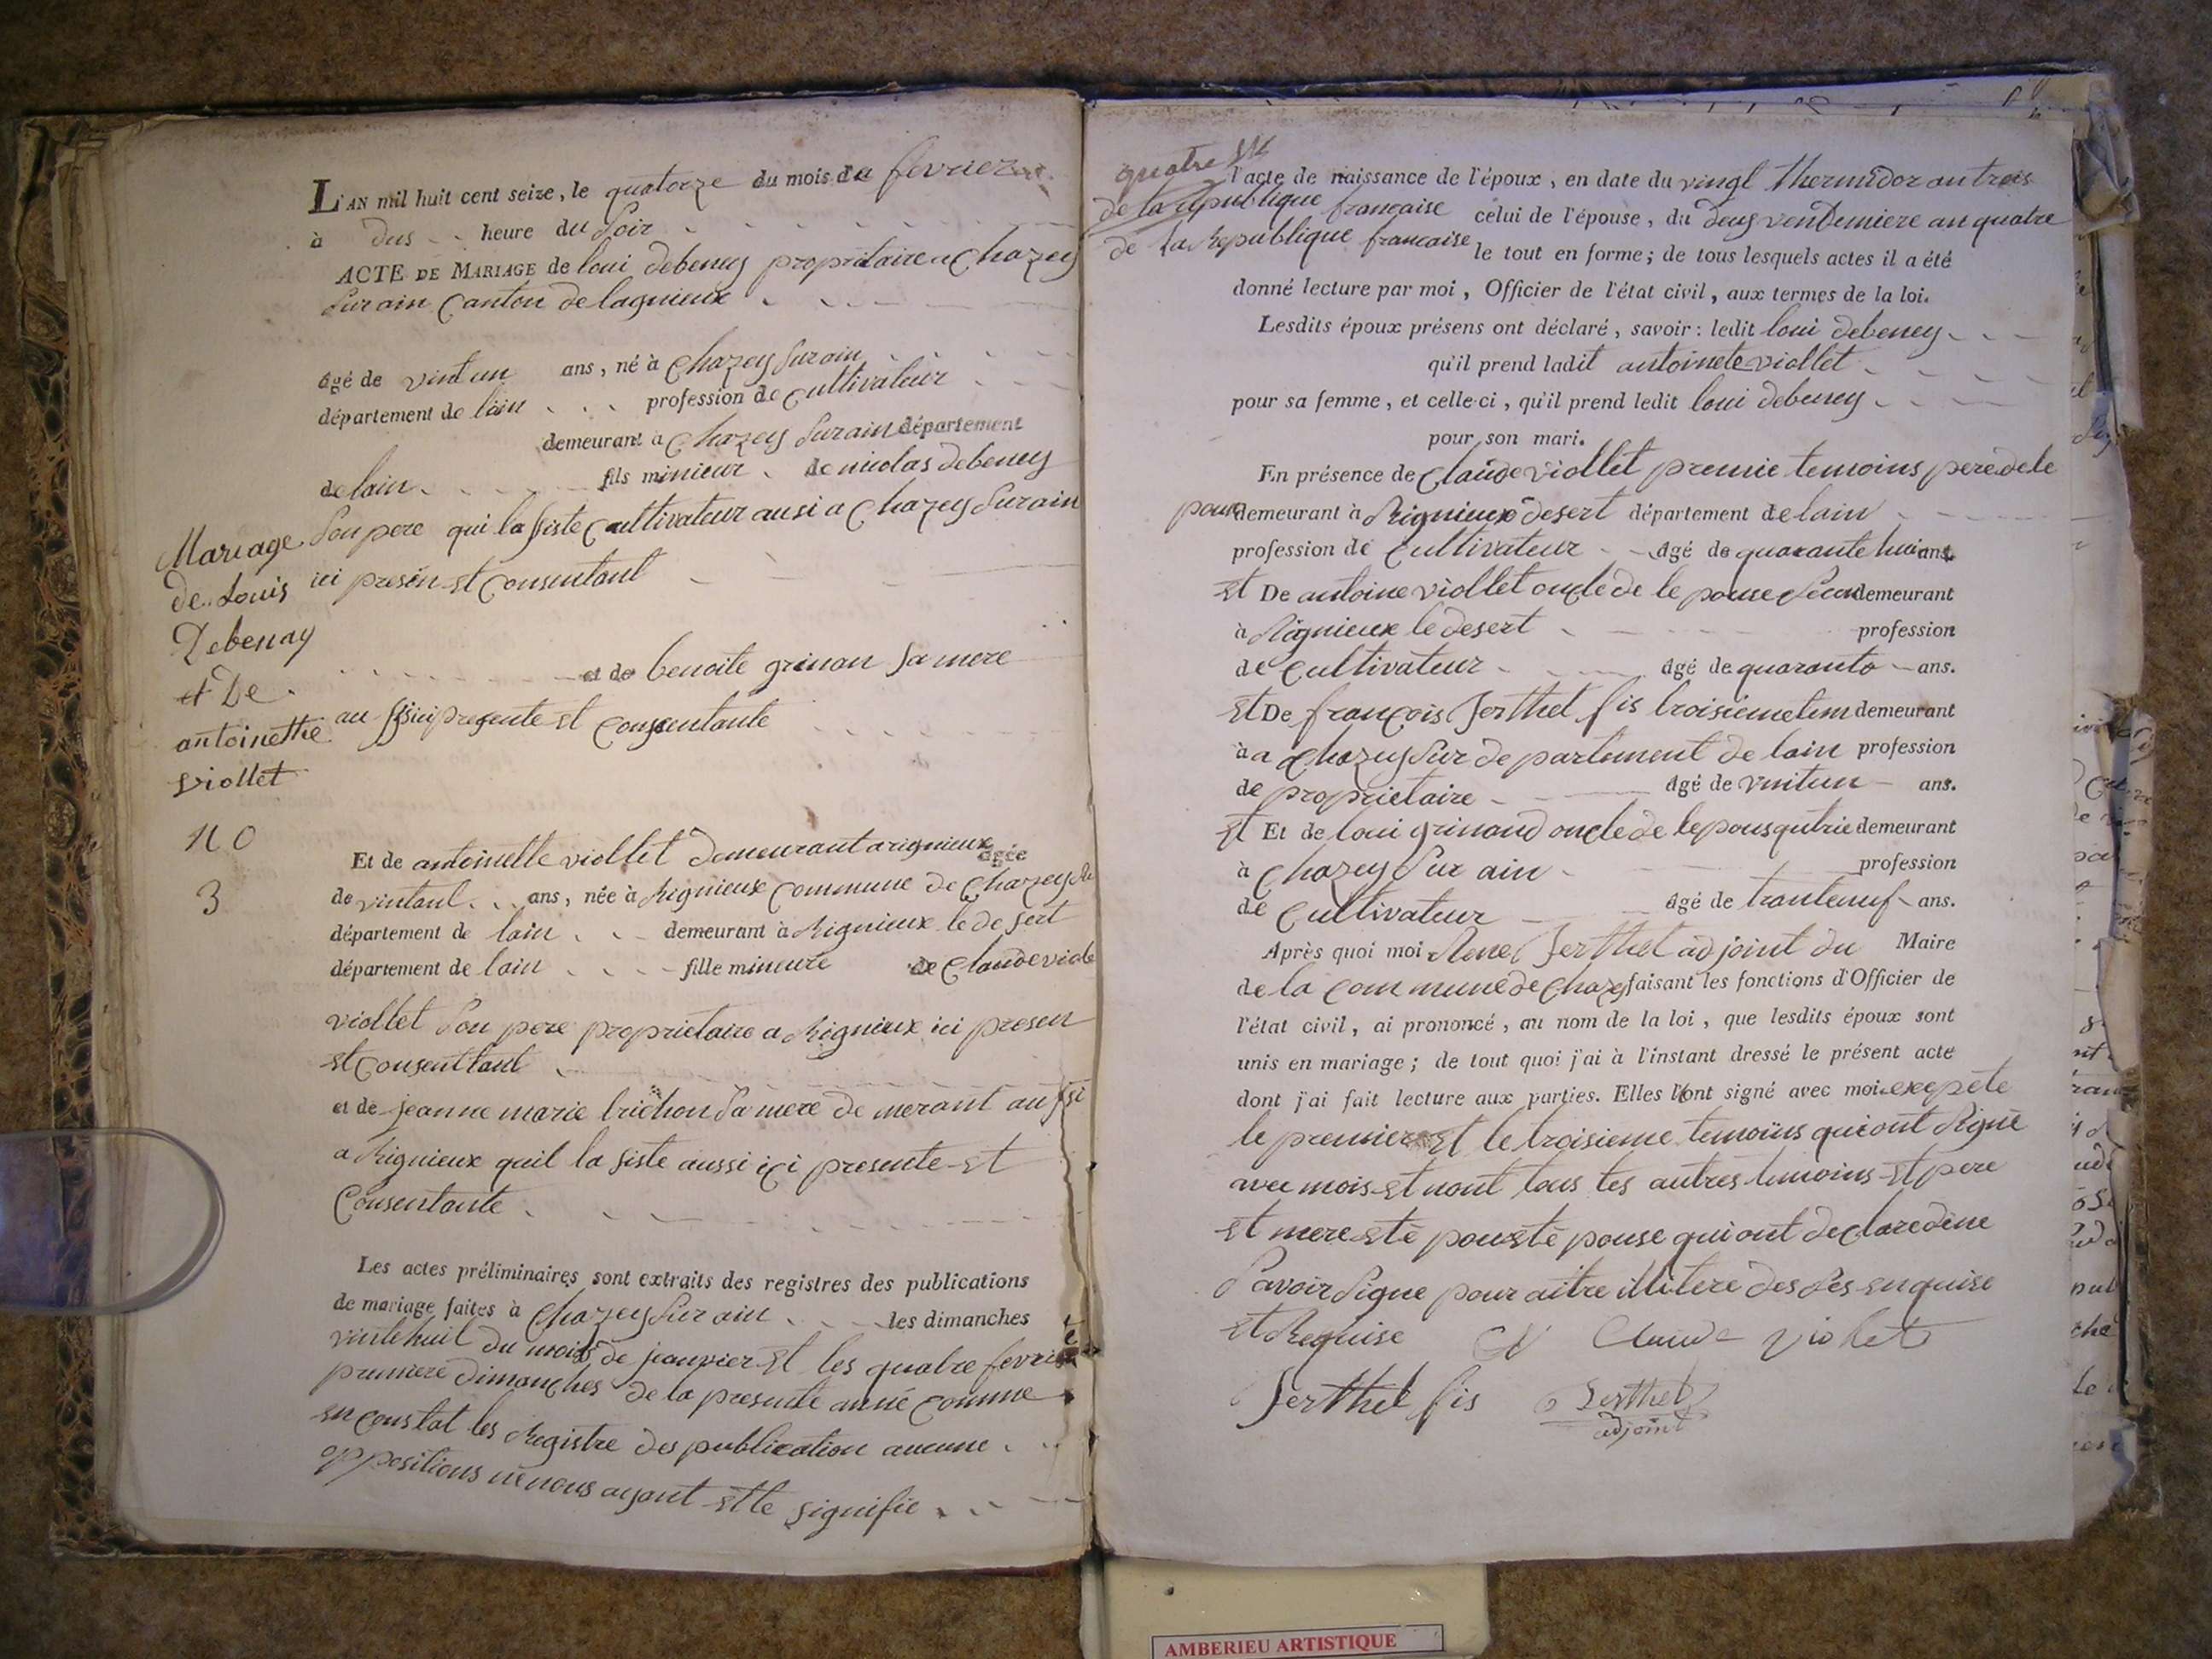 L'AN mil huit cent seize, le quatorze du mois de fevrier
à dus heure du Soir
ACTE DE MARIAGE de loui debeney propriètaire a Chazey
Surain Canton de lagnieux
âgé de vint un ans, né à Chazey Surain
département de lain profession de Cultivateur
demeurant à Chazey Surain département
de lain fils minieur de nicolas debeney
Son pere qui la siste Cultivateur ausi a Chazey Surain
ici presen et Consentant
et de benoite grinan Sa mere
au ssi ici presente et Consentante
Mariage
de Louis
Debenay
et De
antoinette
Viollet
N o
3
Et de antoinette viollet demeurant a rignieux âgée
de vintant ans, née à Rignieux Commune de Chazey
département de lain demeurant à Rignieux le desert
département de lain fille mineure de Claude viole
viollet Son pere proprietaire a Rignieux ici presen
et Consenttant
et de jeanne marie brichon Sa mere de merant aussi
a Rignieux quil la siste aussi ici presente et
Consentante
Les actes préliminaires sont extraits des registres des publications
de mariage faites à Chazey Sur ain les dimanches
vintehuit du mois de jeanvier et les quatre fevrie
premiere dimanches de la presente anné comme
en constat les Registre des publication aucune
oppositions ne nous ayant ette signifie
quatre
l'acte de naissance de l'époux, en date du vingt thermidor an trois
de la republique francaise celui de l'épouse, du deus vendemiere an quatre
de la Republique francaise le tout en forme; de tous lesquels actes il a été
donné lecture par moi, Officier de l'état civil, aux termes de la loi.
Lesdits époux présens ont déclaré, savoir: ledit loui debeney
qu'il prend ladit antoinete viollet
pour sa femme, et celle-ci, qu'il prend ledit loui debeney
pour son mari.
En présence de Claude viollet premie temoins pere de le
pouse demeurant à Rignieux desert département de lain
profession de Cultivateur âgé de quarante hui ans
et De antoine viollet oncle de le pouse Secon demeurant
à Rignieux le desert profession
de Cultivateur âgé de quarante ans.
et De françois Jerthel fis troisieme tem demeurant
à a Chazey Sur departement de lain profession
de proprietaire âgé de vintun ans.
et Et de loui grinand oncle de lepous qutrie demeurant
à Chazey Sur ain profession
de Cultivateur âgé de trantenuf ans.
Après quoi moi Rene Jerthel adjoint du Maire
de la Commune de Chazey faisant les fonctions d'Officier de
l'état civil, ai prononcé, au nom de la loi, que lesdits époux sont
unis en mariage; de tout quoi j'ai à l'instant dressé le présent acte
dont j'ai fait lecture aux parties. Elles l'ont signé avec moi exepete
le premier et le troisieme temoins qui ont Signé
avec mois et nont tous les autres temoins et pere
et mere et è poux et è pouse qui ont declare dene
Savoir Signe pour aitre illitere des Ses enquise
et Requise Claude violet
Jerthel fis Jerthel
adjoint
AMBERIEU ARTISTIQUE